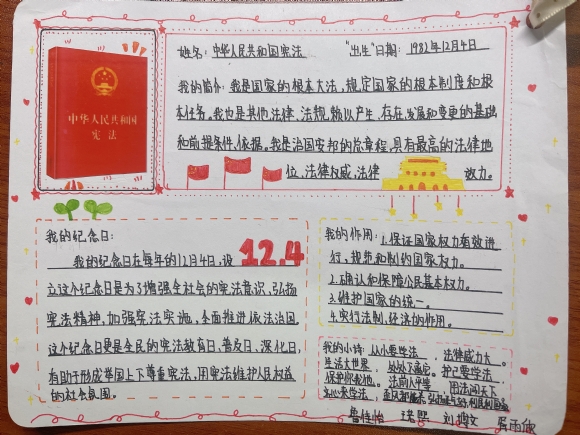 中华人民共和国
宪法
姓名:中华人民共和国宪法 "出生"日期:1982年12月4日
我的简介:我是国家的根本大法,规定国家的根本制度和根
本任务。我也是其他法律、法规赖以产生、存在、发展和变更的基础
和前提条件、依据。我是治国安邦的总章程,具有最高的法律地
位、法律权威、法律效力。
我的纪念日:
我的纪念日在每年的12月4日,设
12.4
立这个纪念日是为了增强全社会的宪法意识,弘扬
宪法精神,加强宪法实施,全面推进依法治国
这个纪念日更是全民的宪法教育日、普及日、深化日,
有助于形成举国上下尊重宪法,用宪法维护人民权益
的社会氛围。
我的作用:1.保证国家权力有效进
行,规范和制约国家权力。
2.确认和保障公民基本权力。
3.维护国家的统一。
4.实行法制,经济的作用。
我的小诗:从小要学法,法律威力大。
生活大世界,处处下。护己要学法
保护你他。法前人平等,用法闯天下
学法,
鲁佳怡 刘 文